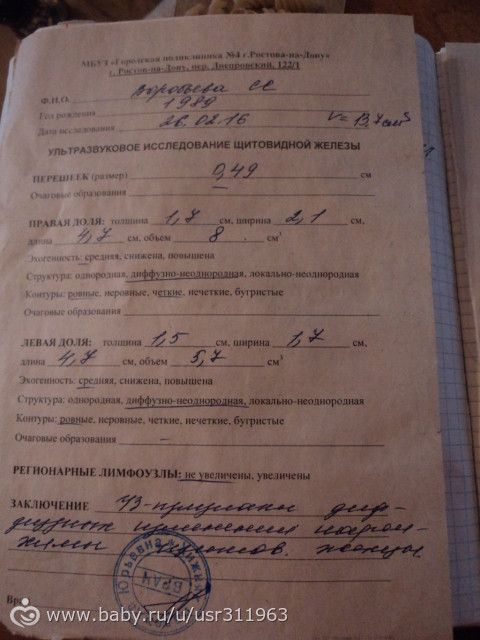 МБУЗ «Городская поликлиника №4 г.Ростова-на-Дону»
г. Ростов-на-Дону, пер. Днепровский, 122/1
Ф.И.О. Воробьева СС
Год рождения 1989
Дата исследования 26.02.16 V=13,7см³
УЛЬТРАЗВУКОВОЕ ИССЛЕДОВАНИЕ ЩИТОВИДНОЙ ЖЕЛЕЗЫ
ПЕРЕШЕЕК (размер) 0,49 см
Очаговые образования
ПРАВАЯ ДОЛЯ: толщина 1,7 см, ширина 2,1 см,
длина 4,7 см, объем 8 см³
Эхогенность: средняя, снижена, повышена
Структура: однородная, диффузно-неоднородная, локально-неоднородная
Контуры: ровные, неровные, четкие, нечеткие, бугристые
Очаговые образования
ЛЕВАЯ ДОЛЯ: толщина 1,5 см, ширина 1,7 см,
длина 4,7 см, объем 5,7 см³
Эхогенность: средняя, снижена, повышена
Структура: однородная, диффузно-неоднородная, локально-неоднородная
Контуры: ровные, неровные, четкие, нечеткие, бугристые
Очаговые образования –
РЕГИОНАРНЫЕ ЛИМФОУЗЛЫ: не увеличены, увеличены
ЗАКЛЮЧЕНИЕ УЗ-признаки диф-
фузных изменений парен-
химы щитов. железы
Юрьевна
ВРАЧ
Вр
www.baby.ru/u/usr311963